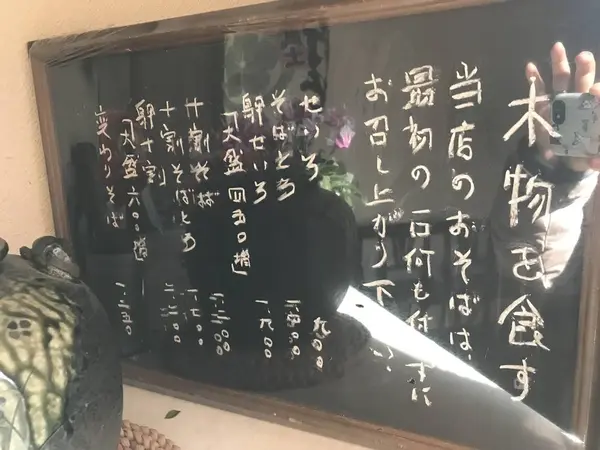 本物を食す
当店のおそばは、
最初の一口何も付けずに
お召し上がり下さい、
せいろ 九〇〇
そばとろ 一、四〇〇
鴨せいろ 一、九〇〇
「大盛 四五〇増」
十割そば 一、七〇〇
十割そばとろ
鴨十割
「大盛 六〇〇増」
変わりそば 一、二五〇